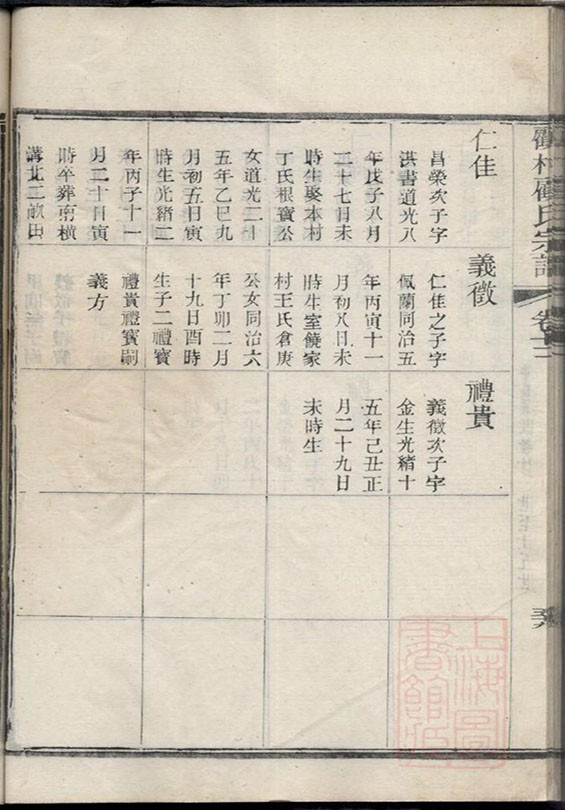 氏宗譜
卷十二
仁佳
昌榮次子字
洪書道光八
年戊子八月
二十七日未
時生娶本村
丁氏根寶公
女道光二十
五年乙巳九
月初五日寅
時生光緒二
年丙子十一
月二十日寅
時卒葬南橫
溝北二畝田
義徵
仁佳之子字
佩蘭同治五
年丙寅十一
月初八日未
時生室饒家
村王氏倉庚
公女同治六
年丁卯二月
十九日酉時
生子二禮寶
禮貴禮寶嗣
義方
禮貴
義徵次子字
金生光緒十
五年己丑正
月二十九日
未時生
上海圖
書館藏